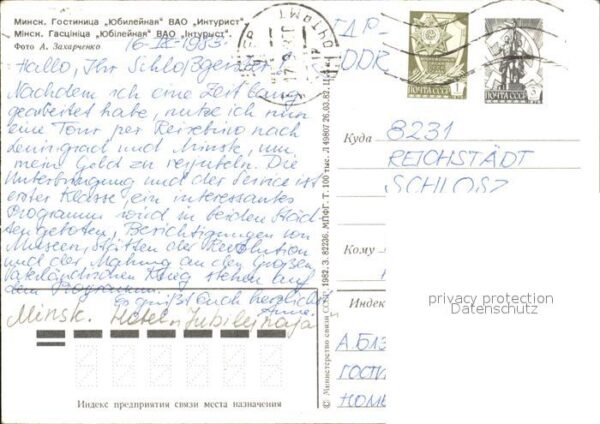 Минск. Гостиница „Юбилейная" ВАО „Интурист".
Мінск. Гасцініца „Юбілейная" ВАО „Інтурыст".
Фото А. Захарченко
16-IX-1983
Hallo, Ihr Schloßgeister!
Nachdem ich eine Zeit lang
gearbeitet habe, nutze ich nun
eine Tour per Reisebüro nach
Leningrad und Minsk, um
mein Geld zu verjubeln. Die
Unterbringung und der Service ist
erster Klasse, ein interessantes
Programm wird in beiden Städ-
ten geboten, Besichtigungen von
Museen, Stätten der Revolution
und der Mahnung an den Großen
Vaterländischen Krieg stehen auf
dem Programm.
Es grüßt Euch herzlichst
Anne.
Minsk. Hotel „Jubilejnaja"
Индекс предприятия связи места назначения
© Министерство связи СССР, 1982. З. 82236. МПФГ. Т. 100 тыс. Л 49807 26.03.82.
ГДР-
DDR
ПОЧТА СССР 1
ПОЧТА СССР 3
Куда
8231
REICHSTÄDT
SCHLOSZ
Кому
Индекс
А. БЛЗ
ГОСТИ
НОМЕ
privacy protection
Datenschutz